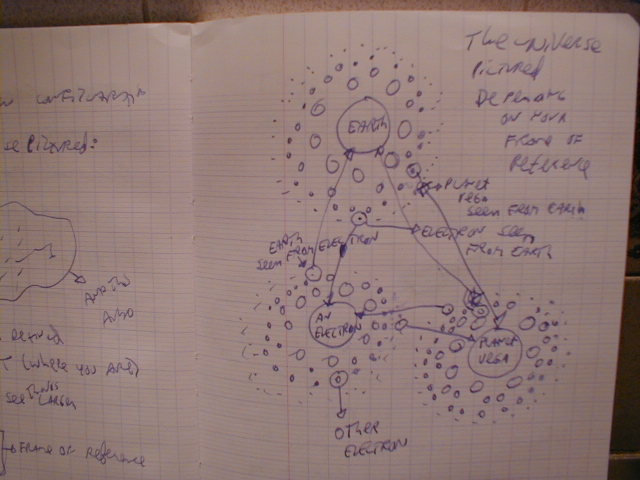 SEE PICTURED:
DEFINED
(WHERE YOU ARE)
SEE THINGS
LARGER
FRAME OF REFERENCE
THE UNIVERSE
PICTURED
DEPENDING
ON YOUR
FRAME OF
REFERENCE
EARTH
PLANET
VEGA
SEEN FROM EARTH
ELECTRON SEEN
FROM EARTH
EARTH
SEEN FROM ELECTRON
AN
ELECTRON
PLANET
VEGA
OTHER
ELECTRON